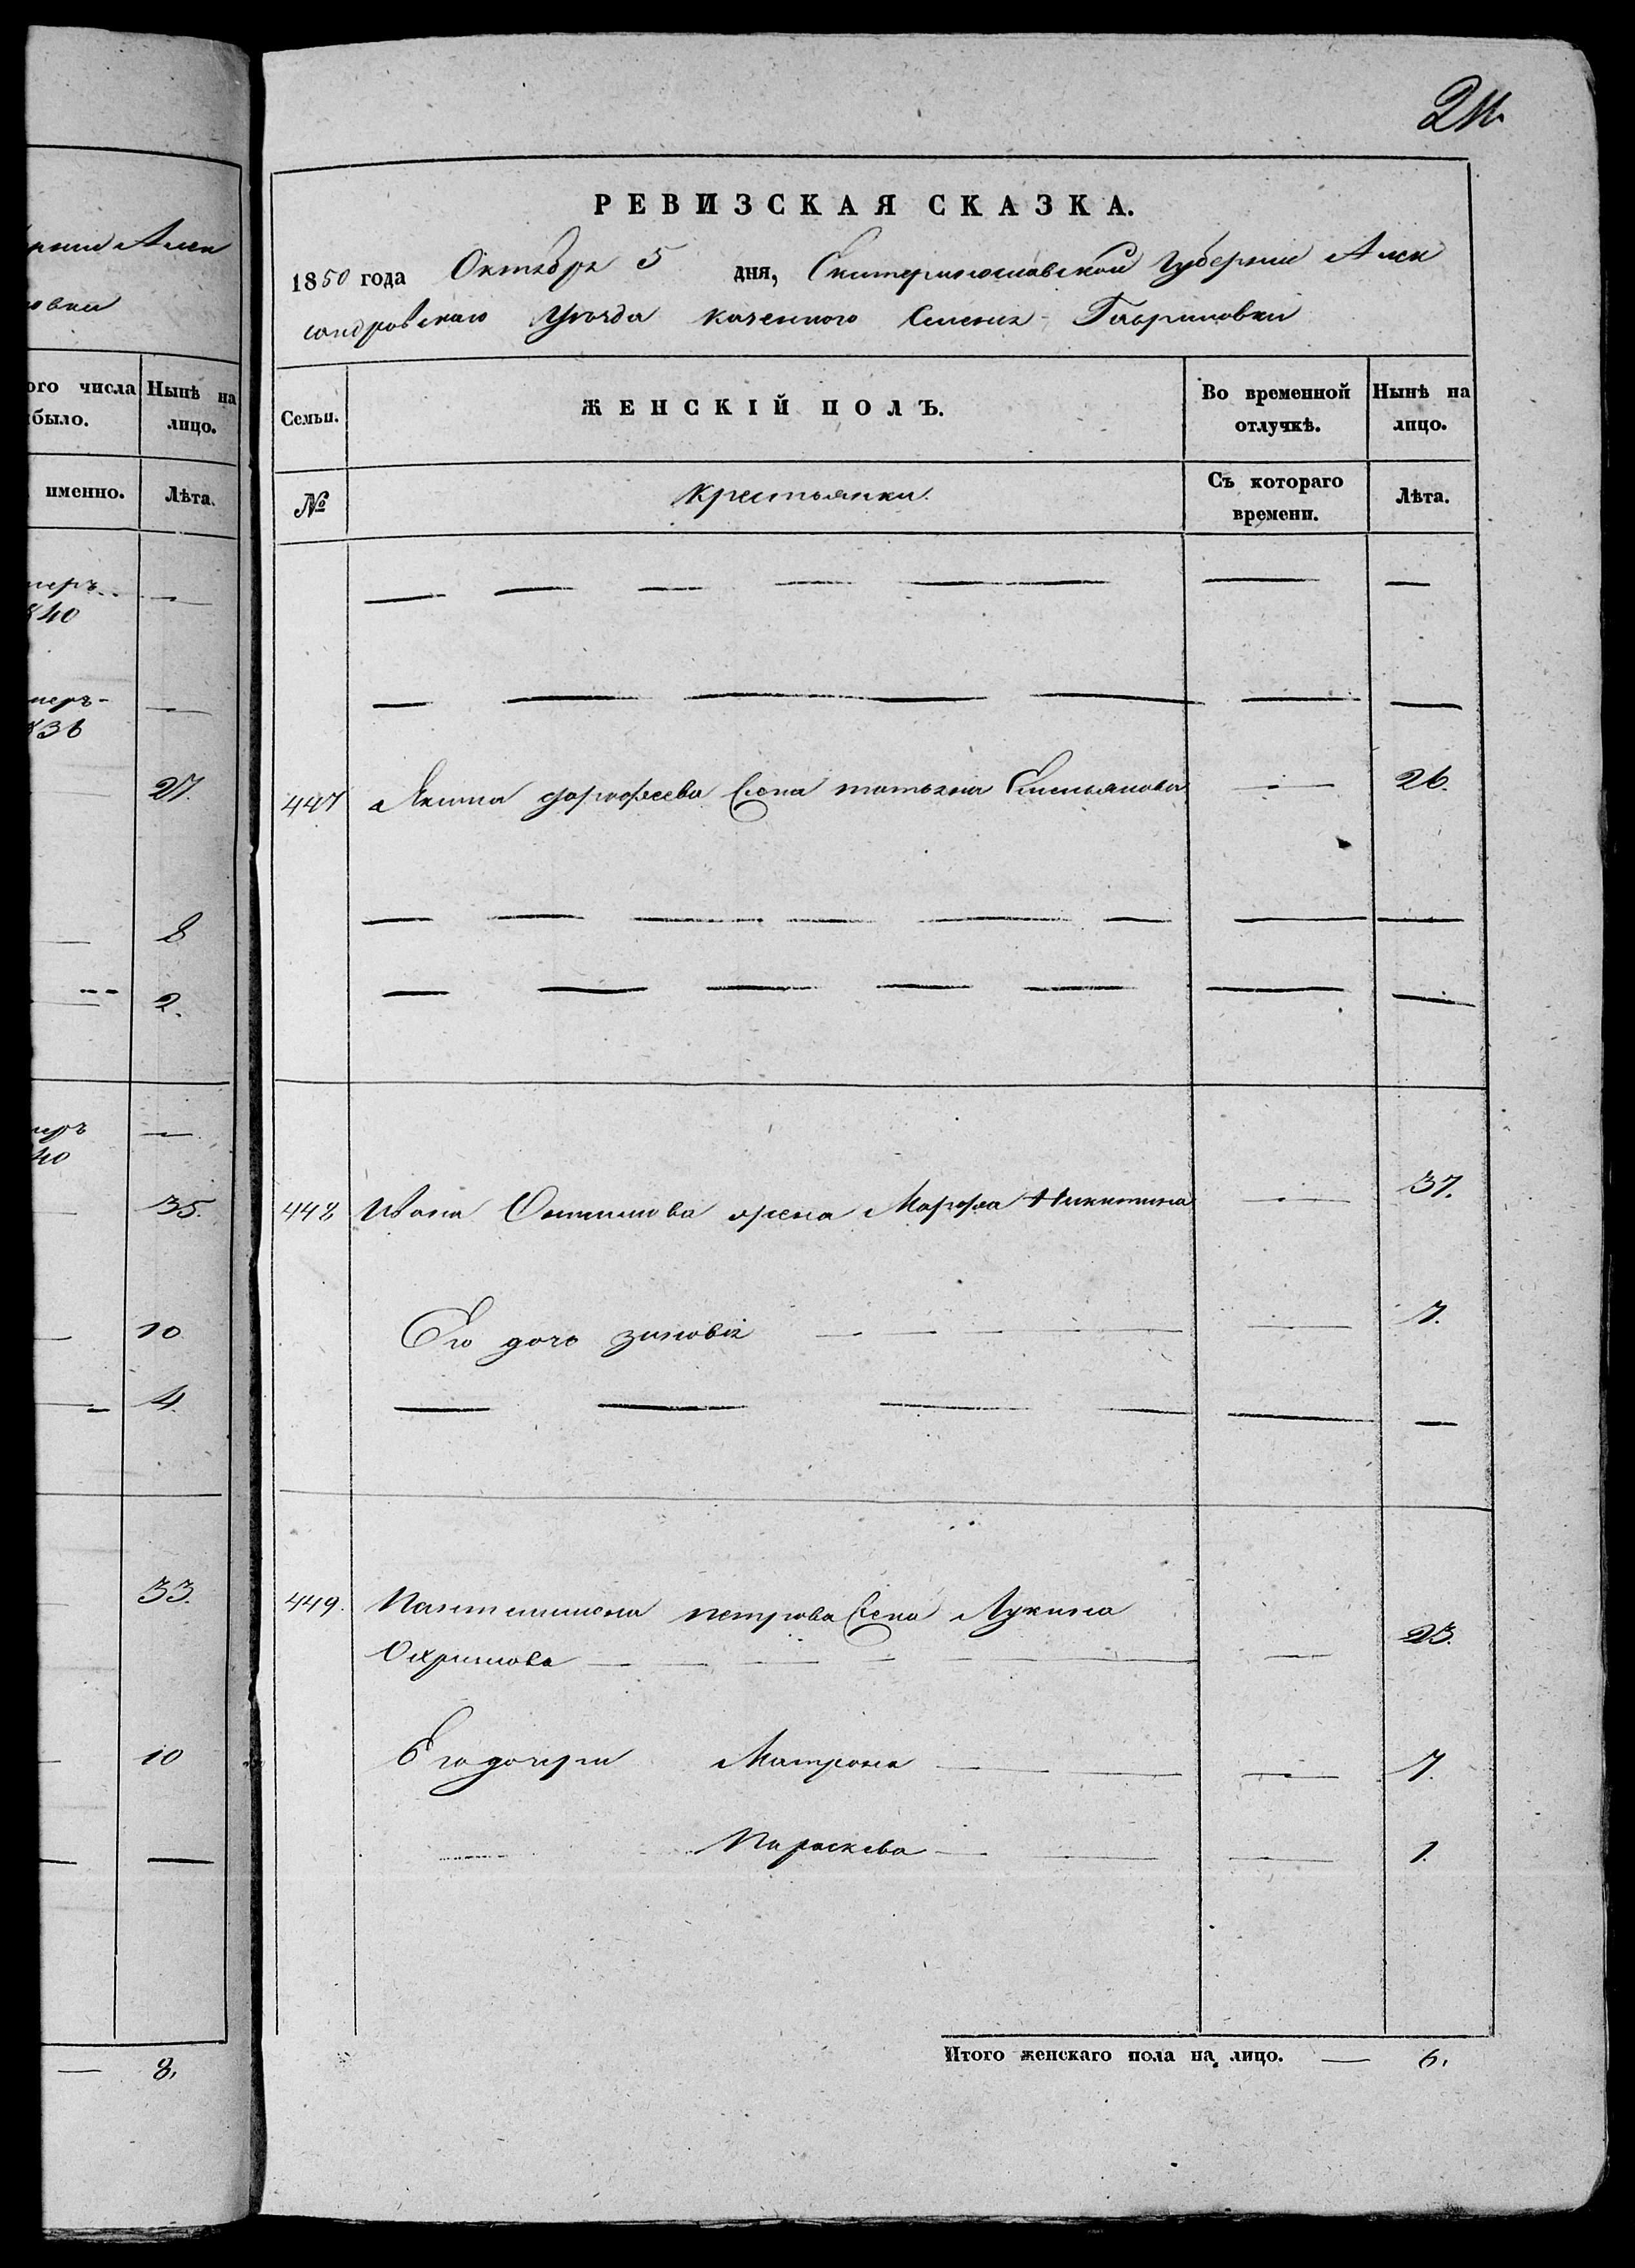 рніи Алек
овки
ого числа Нынѣ на
было. лицо.
именно. Лѣта.
меръ
840
меръ
836
27.
8
2.
меръ
40
35.
10
4.
33.
10
8.
211.
РЕВИЗСКАЯ СКАЗКА.
1850 года Октября 5 дня, Екатеринославской Губерніи Алек
сандровскаго Уѣзда казенного Селенія Гавриловки
Семьи. ЖЕНСКІЙ ПОЛЪ. Во временной отлучкѣ. Нынѣ на лицо.
№ Крестьянки. Съ котораго времени. Лѣта.
447 Якима Дорофеева Жена татьяна Емельянова 26.
448 Ивана жена Марфа Никитина 37.
Его дочь зиновія 7.
449. Пантелимона петрова Жена Лукина
Охримова 23.
Его дочери Матрона 7.
Параскева 1.
Итого женскаго пола на лицо. 6.